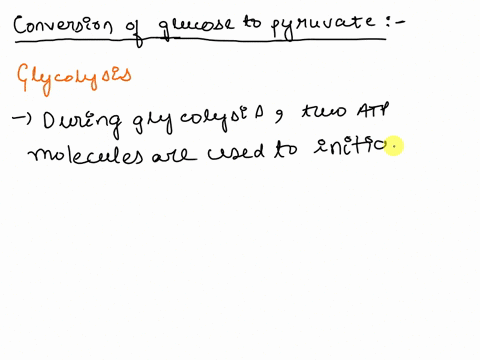 Conversion of glucose to pyruvate :-
Glycolysis
→ During glycolysis, two ATP
molecules are used to initia